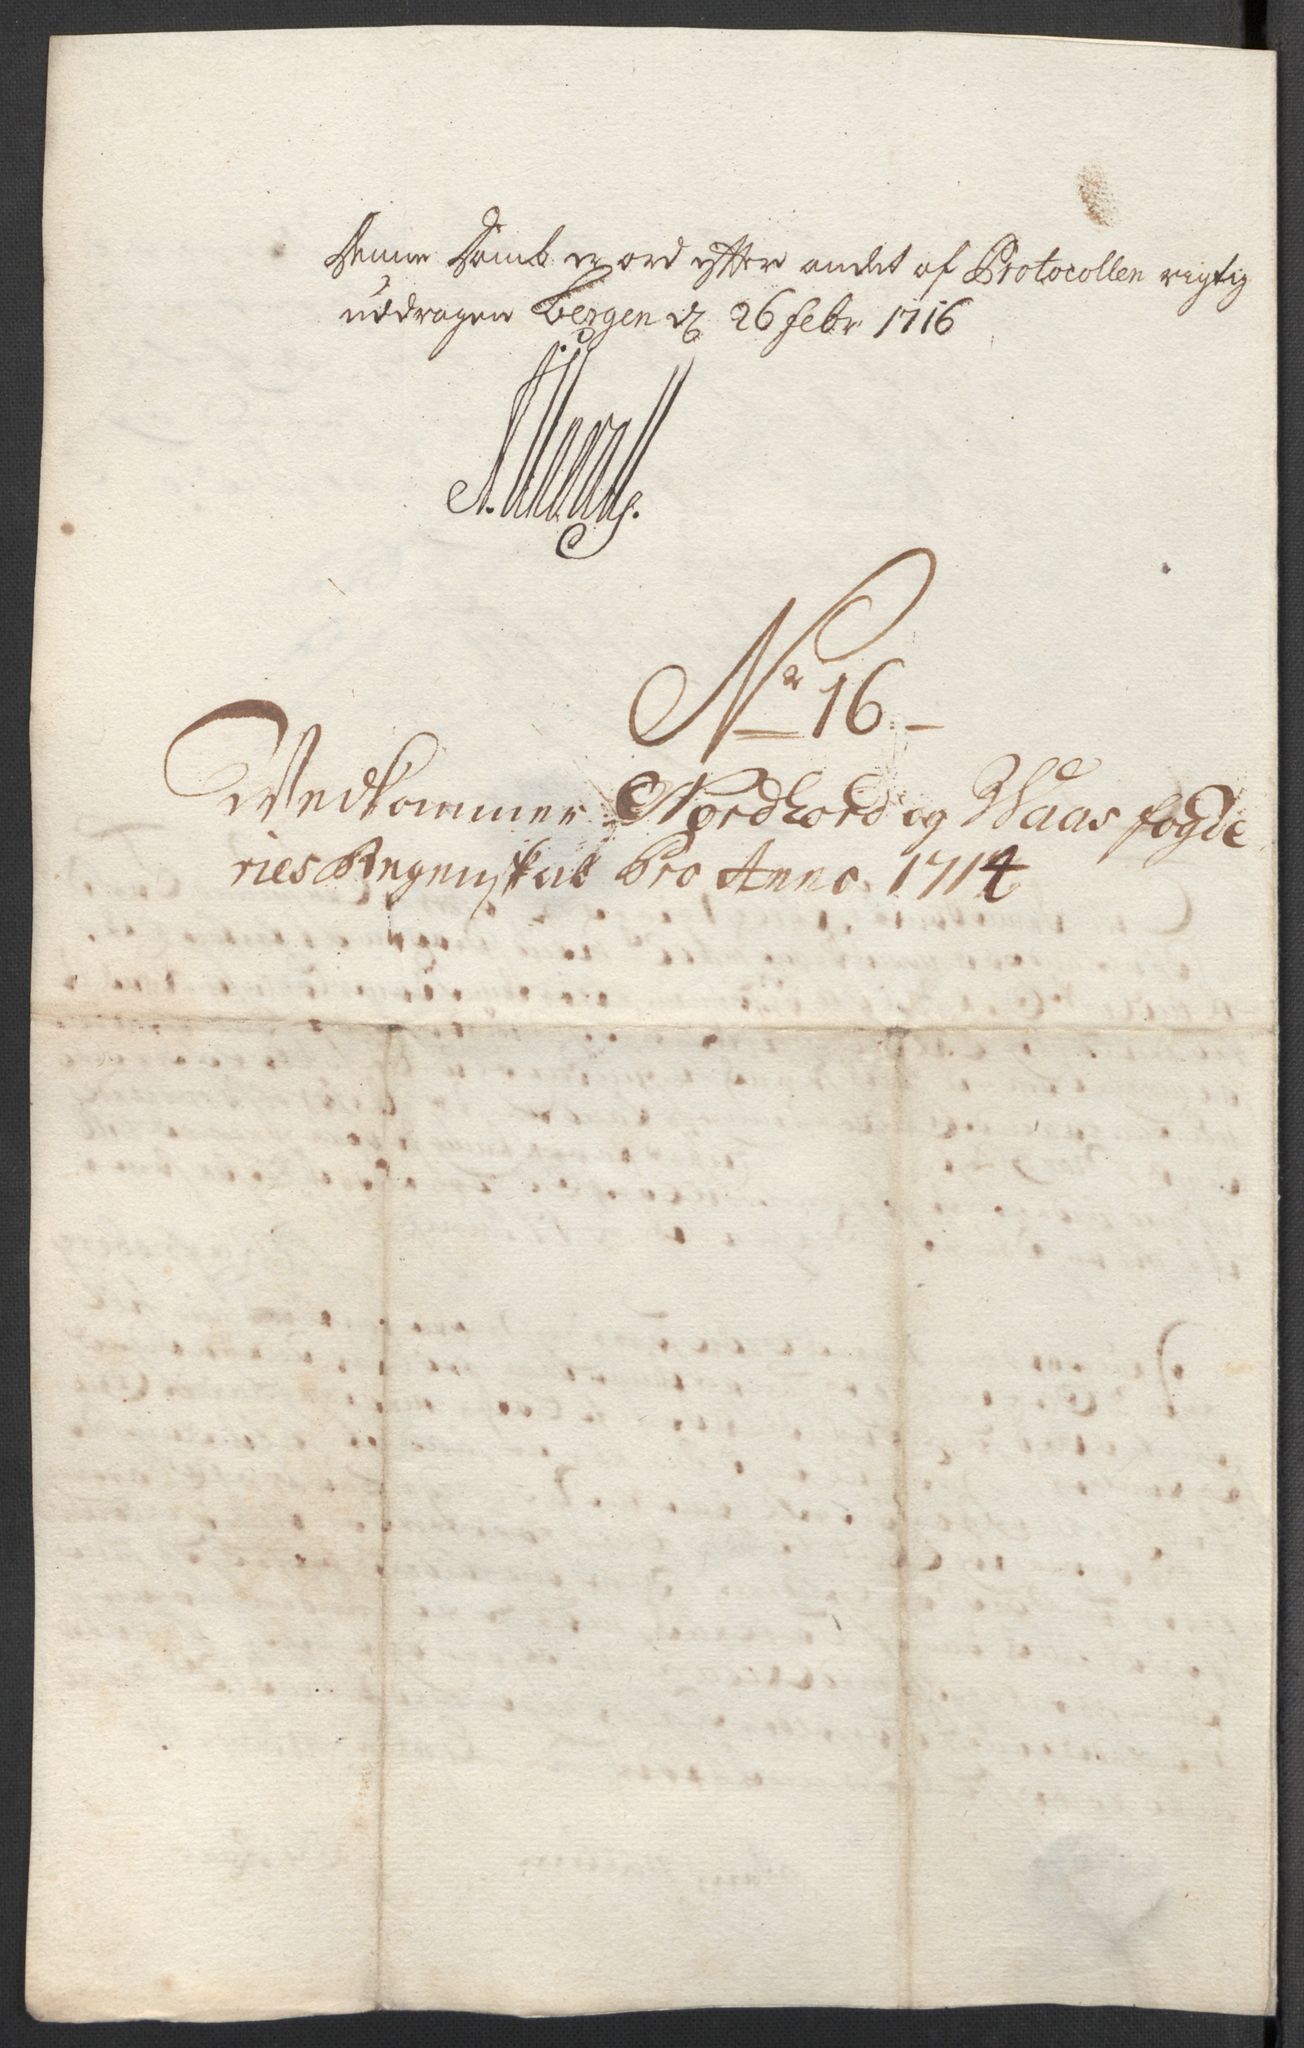 Denne Domb er ord efter andet af Protocollen rigtig
uddragen Bergen d. 26 Febr 1716
Nr 16
Vedkommer Nordhord og Waas fogde
ries Regenskab Pro Anno 1714